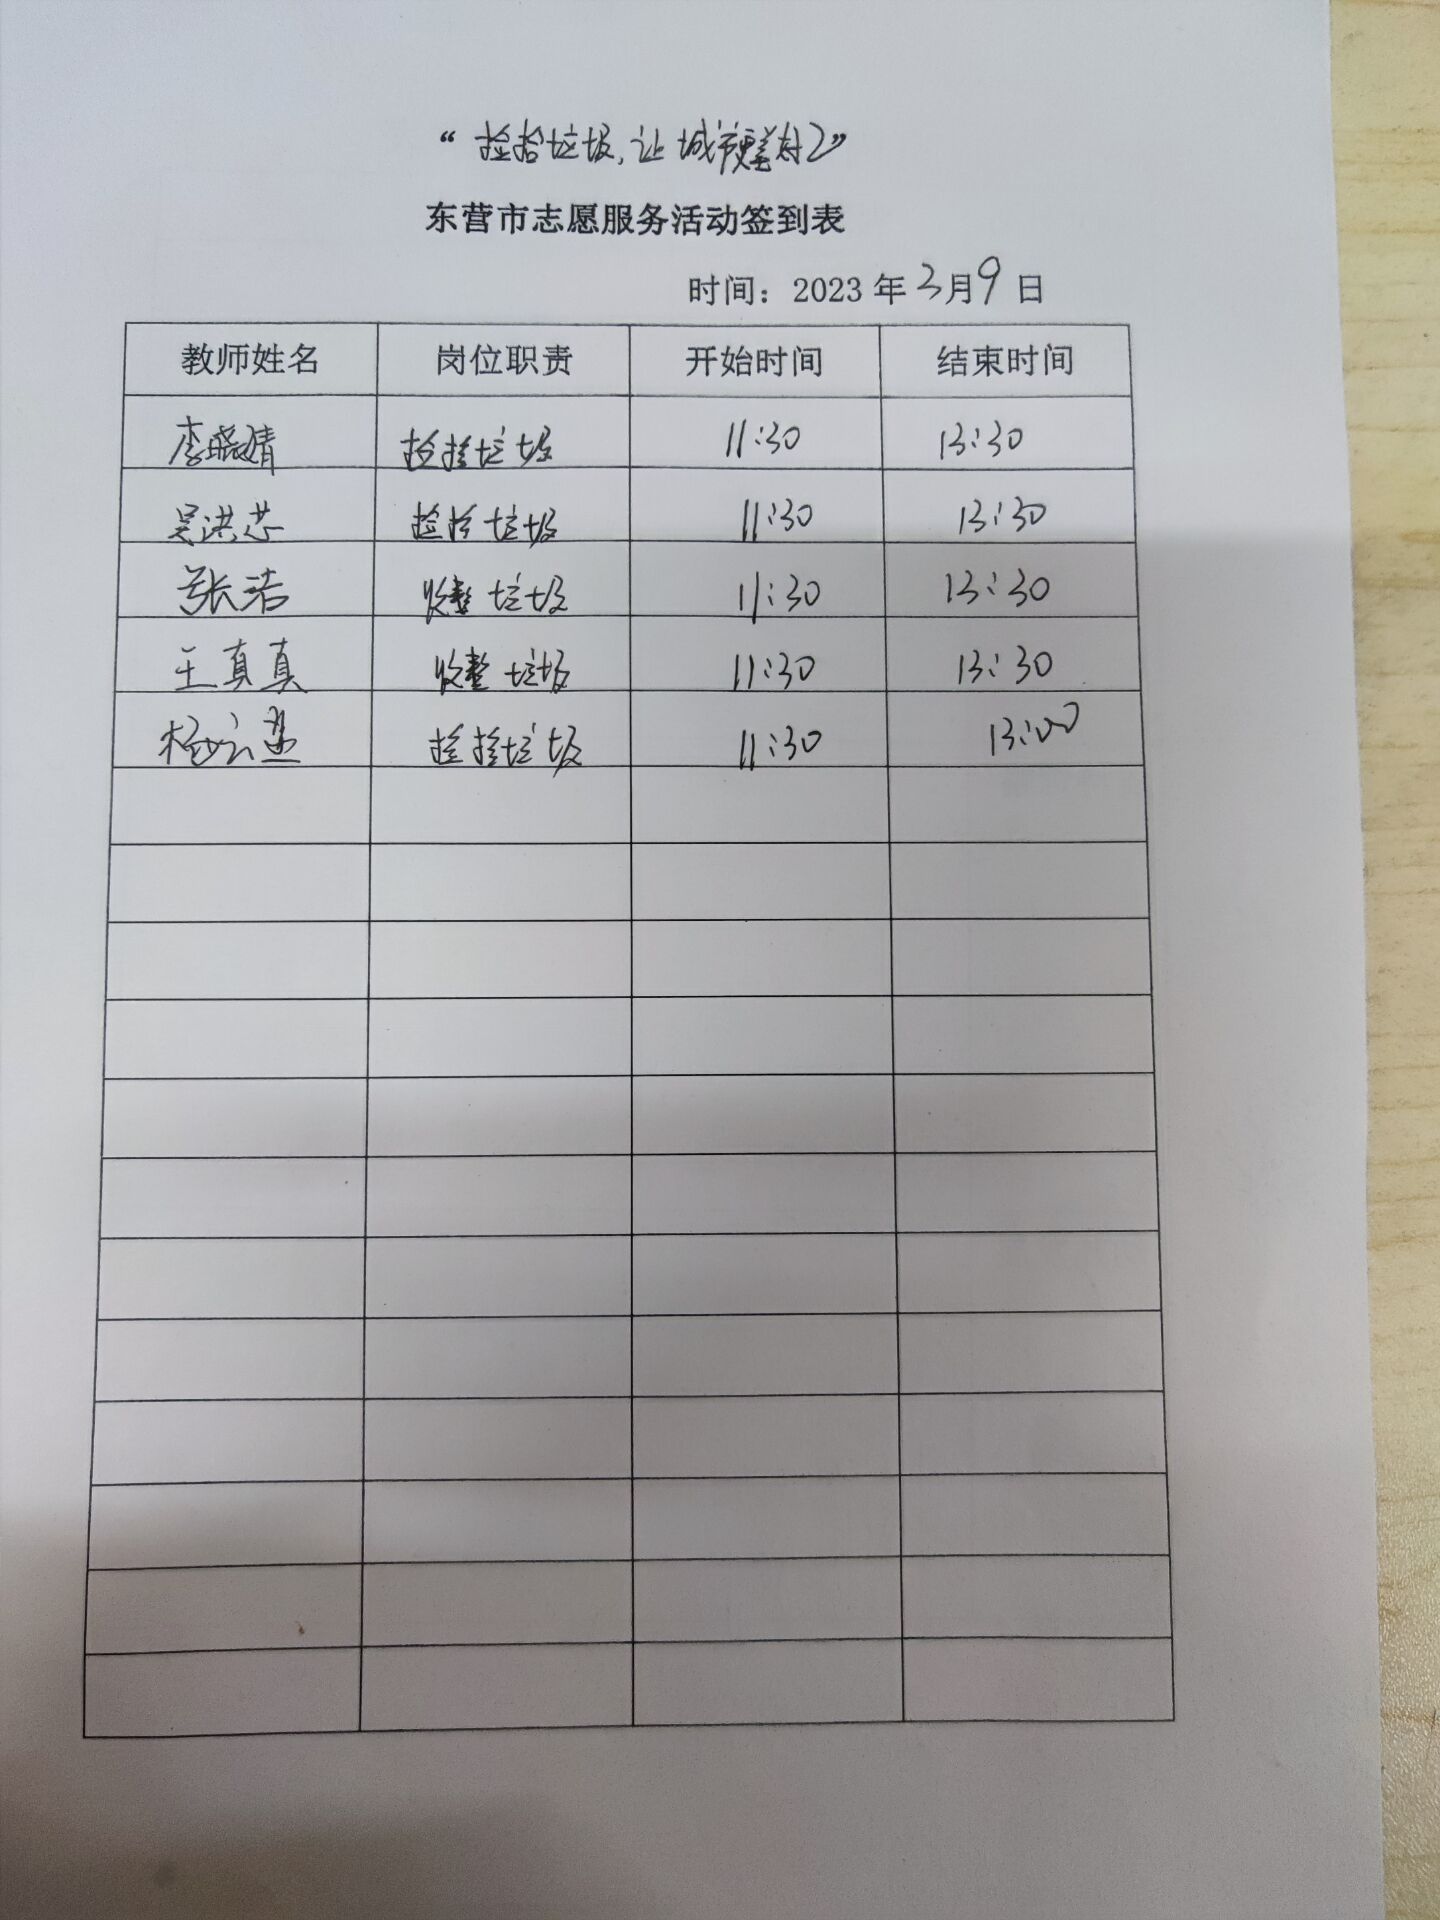 “捡拾垃圾，让城市更美好”
东营市志愿服务活动签到表
时间：2023 年 3月 9 日
教师姓名 岗位职责 开始时间 结束时间
李晓婧 捡拾垃圾 11:30 13:30
吴洪芯 捡拾垃圾 11:30 13:30
张洁 收整垃圾 11:30 13:30
王真真 收整垃圾 11:30 13:30
捡拾垃圾 11:30 13:00